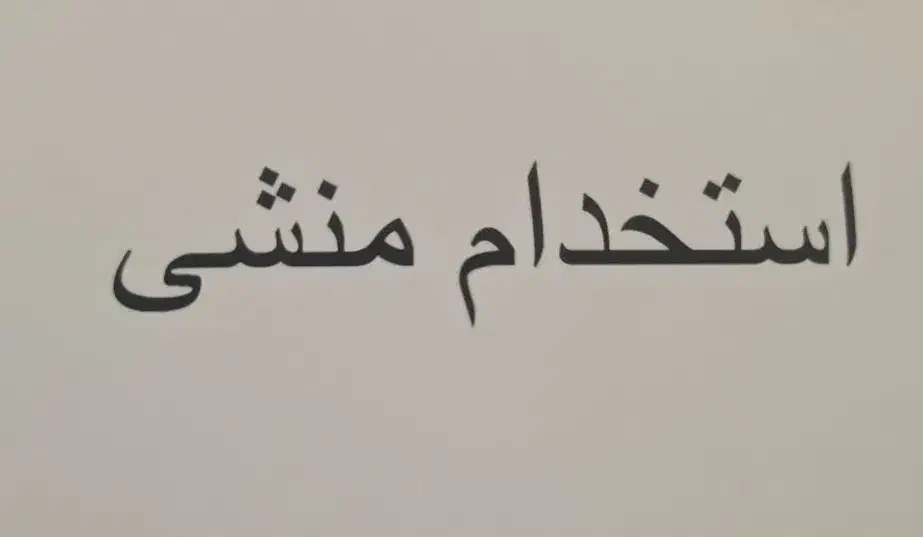 استخدام منشی